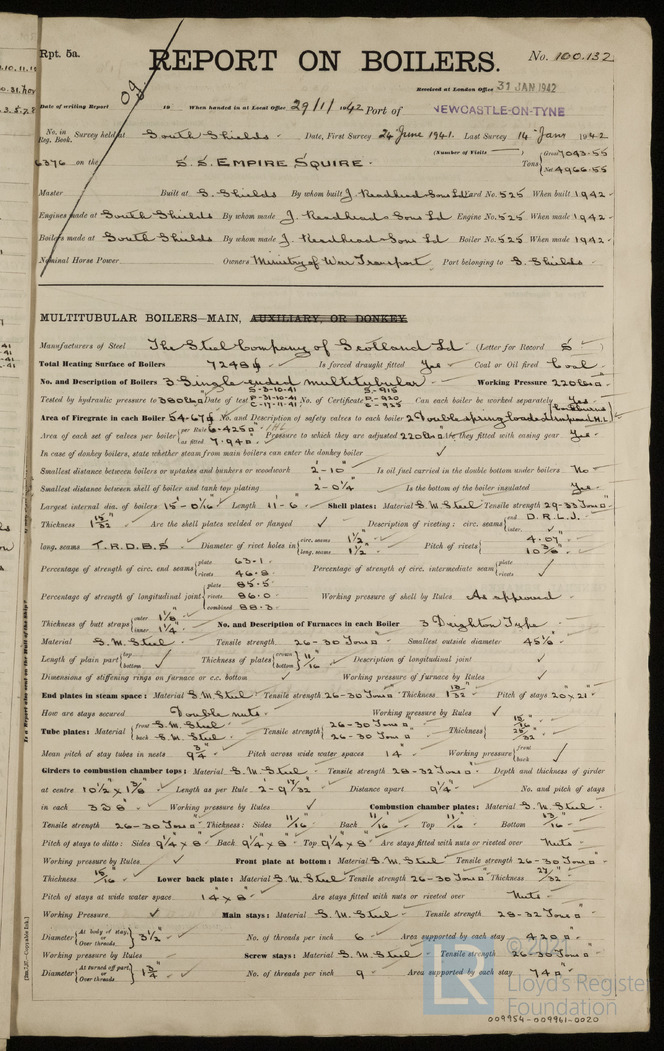 Rpt. 5a.
REPORT ON BOILERS.
No. 100.132
Received at London Office 31 JAN 1942
Date of writing Report 19 When handed in at Local Office 29/1/1942 Port of NEWCASTLE-ON-TYNE
No. in Reg. Book. Survey held at South Shields. Date, First Survey 24 June 1941. Last Survey 14 Jany 1942
(Number of Visits )
6376 on the S.S. EMPIRE SQUIRE. Tons Gross 7043.55 Net 4966.55
Master Built at S. Shields By whom built J. Readhead & Sons Ld Yard No. 525 When built 1942
Engines made at South Shields By whom made J. Readhead & Sons Ld Engine No. 525 When made 1942
Boilers made at South Shields By whom made J. Readhead & Sons Ld Boiler No. 525 When made 1942
Nominal Horse Power Owners Ministry of War Transport Port belonging to S. Shields
MULTITUBULAR BOILERS—MAIN, AUXILIARY, OR DONKEY.
Manufacturers of Steel The Steel Company of Scotland Ld (Letter for Record S )
Total Heating Surface of Boilers 7248 Is forced draught fitted Yes Coal or Oil fired Coal
No. and Description of Boilers 3 Single ended multitubular Working Pressure 220 lbs
S-3-10-41 S-915
Tested by hydraulic pressure to 380 lbs Date of test P-31-10-41 No. of Certificate P-920 Can each boiler be worked separately Yes
C-17-11-41 C-925
Area of Firegrate in each Boiler 54.67 No. and Description of safety valves to each boiler 2 Double spring loaded
Area of each set of valves per boiler per Rule 6.425 as fitted 7.940 Pressure to which they are adjusted 220 lbs Are they fitted with easing gear Yes
In case of donkey boilers, state whether steam from main boilers can enter the donkey boiler ✓
Smallest distance between boilers or uptakes and bunkers or woodwork 2'-10" Is oil fuel carried in the double bottom under boilers No
Smallest distance between shell of boiler and tank top plating 2'-0¼" Is the bottom of the boiler insulated Yes
Largest internal dia. of boilers 15'-0 1/16" Length 11'-6" Shell plates: Material S.M. Steel Tensile strength 29-33 Tons
Thickness 1 15/32" Are the shell plates welded or flanged ✓ Description of riveting: circ. seams end D.R.L.J. inter. ✓
long. seams T.R.D.B.S Diameter of rivet holes in circ. seams 1½" long. seams 1½" Pitch of rivets 4.07" 10 3/8"
Percentage of strength of circ. end seams plate 63.1 rivets 46.8 Percentage of strength of circ. intermediate seam plate rivets ✓
Percentage of strength of longitudinal joint plate 85.5 rivets 86.0 combined 88.3 Working pressure of shell by Rules As approved
Thickness of butt straps outer 1 1/8" inner 1¼" No. and Description of Furnaces in each Boiler 3 Deighton Type
Material S.M. Steel Tensile strength 26-30 Tons Smallest outside diameter 45 1/6"
Length of plain part top bottom ✓ Thickness of plates crown bottom 11/16" Description of longitudinal joint ✓
Dimensions of stiffening rings on furnace or c.c. bottom ✓ Working pressure of furnace by Rules ✓
End plates in steam space: Material S.M. Steel Tensile strength 26-30 Tons Thickness Pitch of stays 20" x 21"
How are stays secured Double nuts Working pressure by Rules ✓
Tube plates: Material front S.M. Steel back S.M. Steel Tensile strength 26-30 Tons 26-30 Tons Thickness 15/16" 25/32"
Mean pitch of stay tubes in nests 9¾" Pitch across wide water spaces 14" Working pressure front back ✓
Girders to combustion chamber tops: Material S.M. Steel Tensile strength 28-32 Tons Depth and thickness of girder
at centre 10½" x 1 3/8" Length as per Rule 2'-9 17/32" Distance apart 9¼" No. and pitch of stays
in each 3 @ 8" Working pressure by Rules ✓ Combustion chamber plates: Material S.M. Steel
Tensile strength 26-30 Tons Thickness: Sides 11/16" Back 11/16" Top 11/16" Bottom 13/16"
Pitch of stays to ditto: Sides 9¼" x 8" Back 9¼" x 8" Top 9¼" x 8" Are stays fitted with nuts or riveted over Nuts
Working pressure by Rules ✓ Front plate at bottom: Material S.M. Steel Tensile strength 26-30 Tons
Thickness 15/16" Lower back plate: Material S.M. Steel Tensile strength 26-30 Tons Thickness 27/32"
Pitch of stays at wide water space 14" x 8" Are stays fitted with nuts or riveted over Nuts
Working Pressure ✓ Main stays: Material S.M. Steel Tensile strength 28-32 Tons
Diameter At body of stay, or Over threads 3½" No. of threads per inch 6 Area supported by each stay 420
Working pressure by Rules Screw stays: Material S.M. Steel Tensile strength 26-30 Tons
Diameter At turned off part, or Over threads 1¾" No. of threads per inch 9 Area supported by each stay 74
© 2021
LR
Lloyd's Register
Foundation
009954-009961-0020